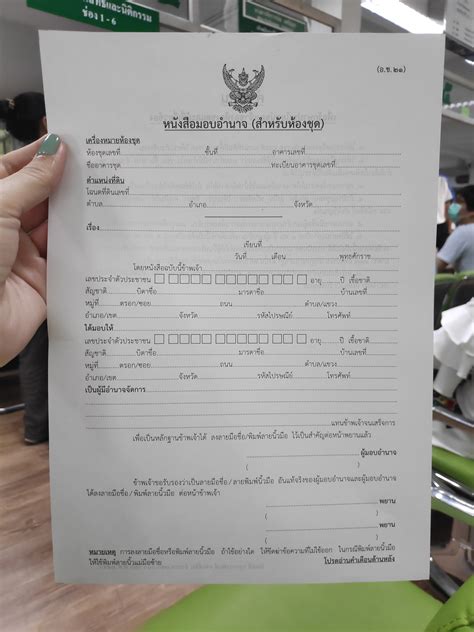 ช่อง 1 - 6
(อ.ช. ๒๑)
หนังสือมอบอำนาจ (สำหรับห้องชุด)
เครื่องหมายห้องชุด
ห้องชุดเลขที่ ชั้นที่ อาคารเลขที่
ชื่ออาคารชุด ทะเบียนอาคารชุดเลขที่
ตำแหน่งที่ดิน
โฉนดที่ดินเลขที่
ตำบล อำเภอ จังหวัด
เรื่อง
เขียนที่
วันที่ เดือน พุทธศักราช
โดยหนังสือฉบับนี้ข้าพเจ้า
เลขประจำตัวประชาชน อายุ ปี เชื้อชาติ
สัญชาติ บิดาชื่อ มารดาชื่อ บ้านเลขที่
หมู่ที่ ตรอก/ซอย ถนน ตำบล/แขวง
อำเภอ/เขต จังหวัด รหัสไปรษณีย์ โทรศัพท์
ได้มอบให้
เลขประจำตัวประชาชน อายุ ปี เชื้อชาติ
สัญชาติ บิดาชื่อ มารดาชื่อ บ้านเลขที่
หมู่ที่ ตรอก/ซอย ถนน ตำบล/แขวง
อำเภอ/เขต จังหวัด รหัสไปรษณีย์ โทรศัพท์
เป็นผู้มีอำนาจจัดการ
แทนข้าพเจ้าจนเสร็จการ
เพื่อเป็นหลักฐานข้าพเจ้าได้ ลงลายมือชื่อ/พิมพ์ลายนิ้วมือ ไว้เป็นสำคัญต่อหน้าพยานแล้ว
ผู้มอบอำนาจ
( )
ข้าพเจ้าขอรับรองว่าเป็นลายมือชื่อ/ลายพิมพ์นิ้วมือ อันแท้จริงของผู้มอบอำนาจและผู้มอบอำนาจ
ได้ลงลายมือชื่อ/พิมพ์ลายนิ้วมือ ต่อหน้าข้าพเจ้า
พยาน
( )
พยาน
( )
หมายเหตุ การลงลายมือชื่อหรือพิมพ์ลายนิ้วมือ ถ้าใช้อย่างใด ให้ขีดฆ่าข้อความที่ไม่ใช้ออก ในกรณีพิมพ์ลายนิ้วมือ
ให้ใช้พิมพ์ลายนิ้วแม่มือซ้าย โปรดอ่านคำเตือนด้านหลัง